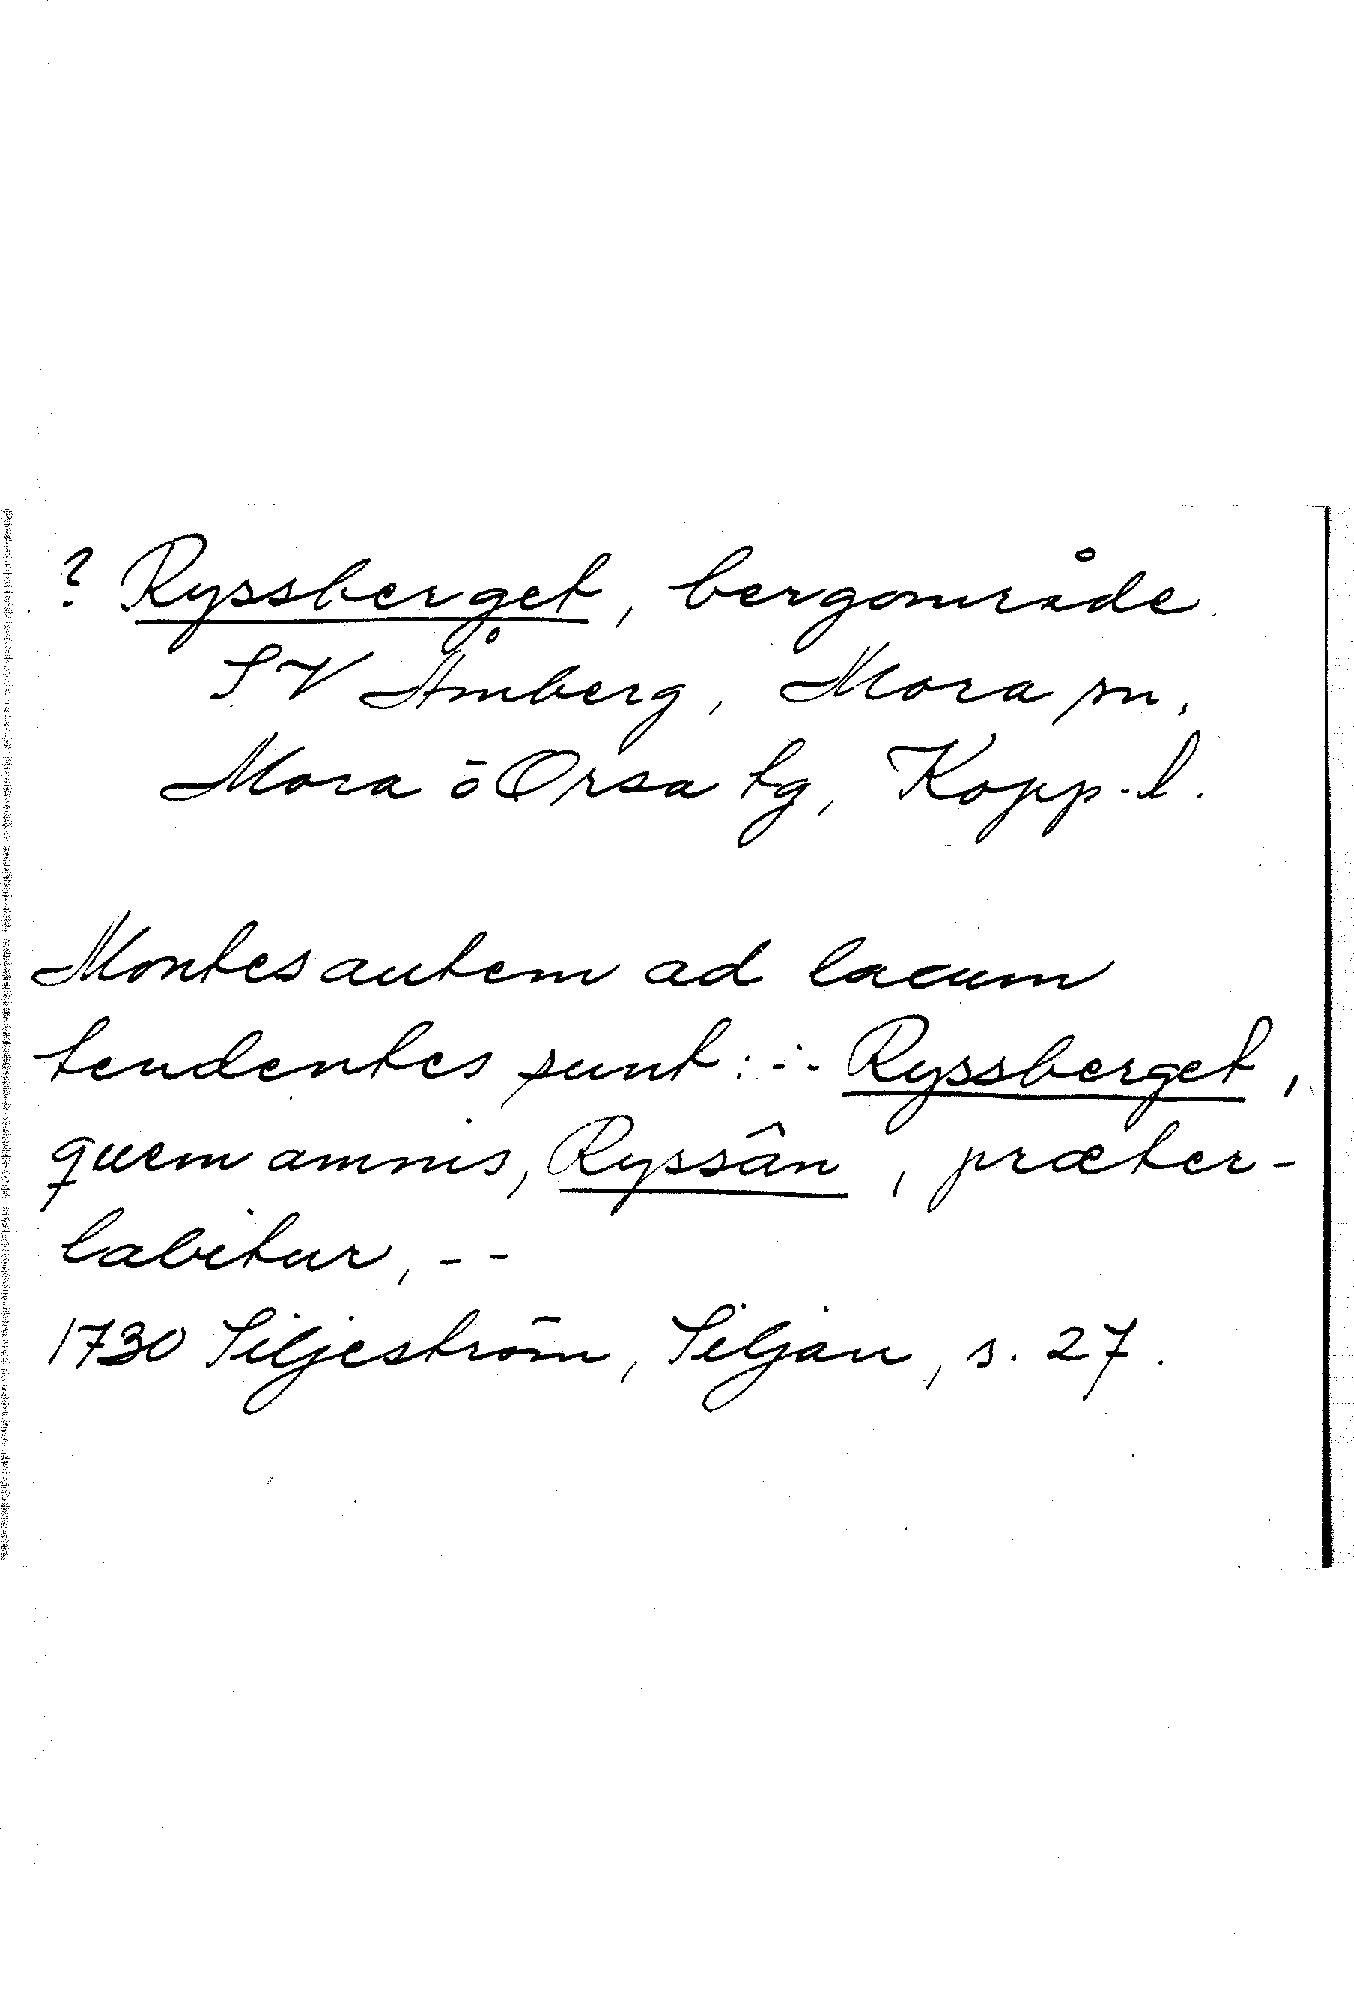 ? Ryssberget, bergområde
SV Åmberg, Mora sn,
Mora ō Orsa tg, Kopp. l.
Montes autem ad lacum
tendentes sunt: -- Ryssberget,
quem amnis, Ryssân, præter-
labitur, --
1730 Siljeström, Siljan, s. 27.